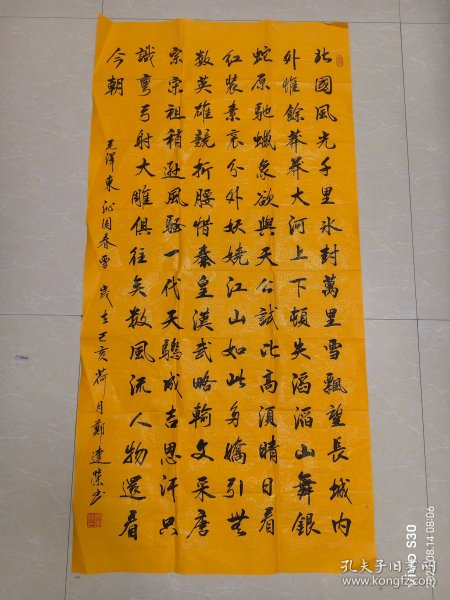 北國風光千里冰封萬里雪飄望長城內
外惟餘莽莽大河上下頓失滔滔山舞銀
蛇原馳蠟象欲與天公試比高須晴日看
紅裝素裹分外妖嬈江山如此多嬌引無
數英雄競折腰惜秦皇漢武略輸文采唐
宗宋祖稍遜風騷一代天驕成吉思汗只
識彎弓射大雕俱往矣數風流人物還看
今朝
毛澤東沁園春雪歲在己亥荷月鄭達榮书
vivo S30
08.14 08:06
孔夫子旧书网